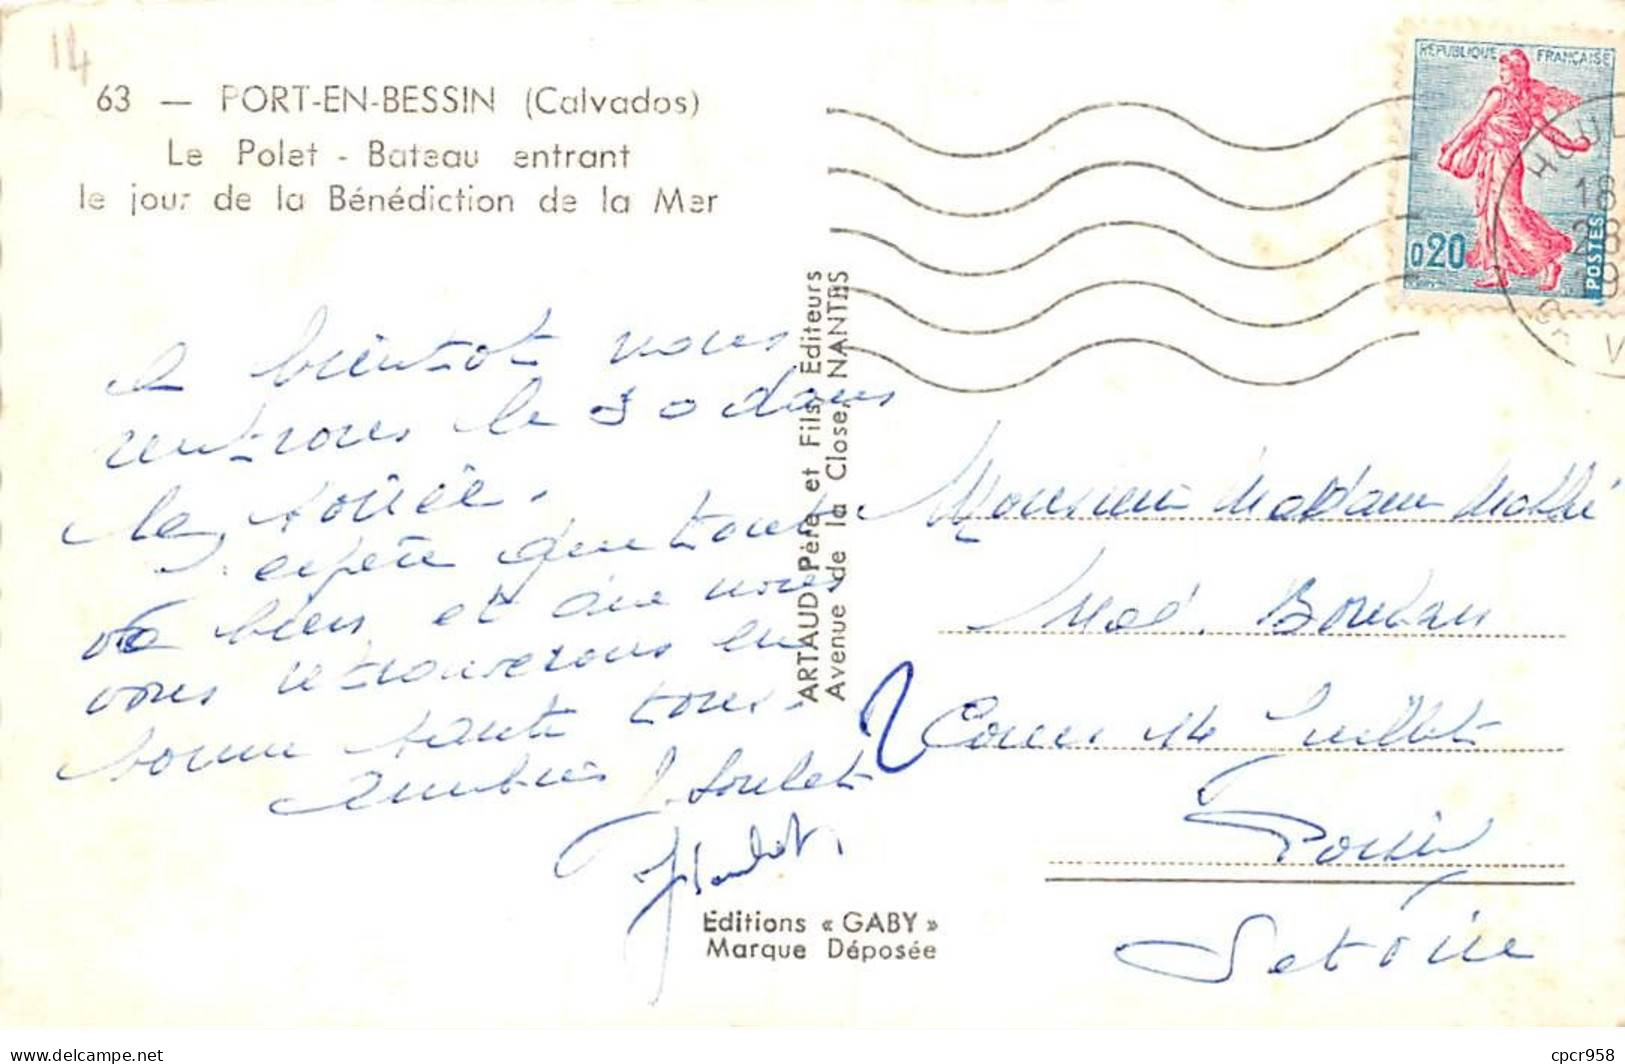 14
63 — PORT-EN-BESSIN (Calvados)
Le Polet - Bateau entrant
le jour de la Bénédiction de la Mer
REPUBLIQUE FRANÇAISE
0,20
POSTES
HOUL
18
28
19
ARTAUD Père et Fils Editeurs
Avenue de la Close, NANTES
a bientot nous
rentrons le 30 dans
la soirée.
J'espère que tout
va bien et que nous
vous retrouverons en
bonne santé tous.
Amitiés J. Soulet
Monsieur Madame
2 Cours 14 Juillet
Poissy
Set Oise
Editions « GABY »
Marque Déposée
cpcr958